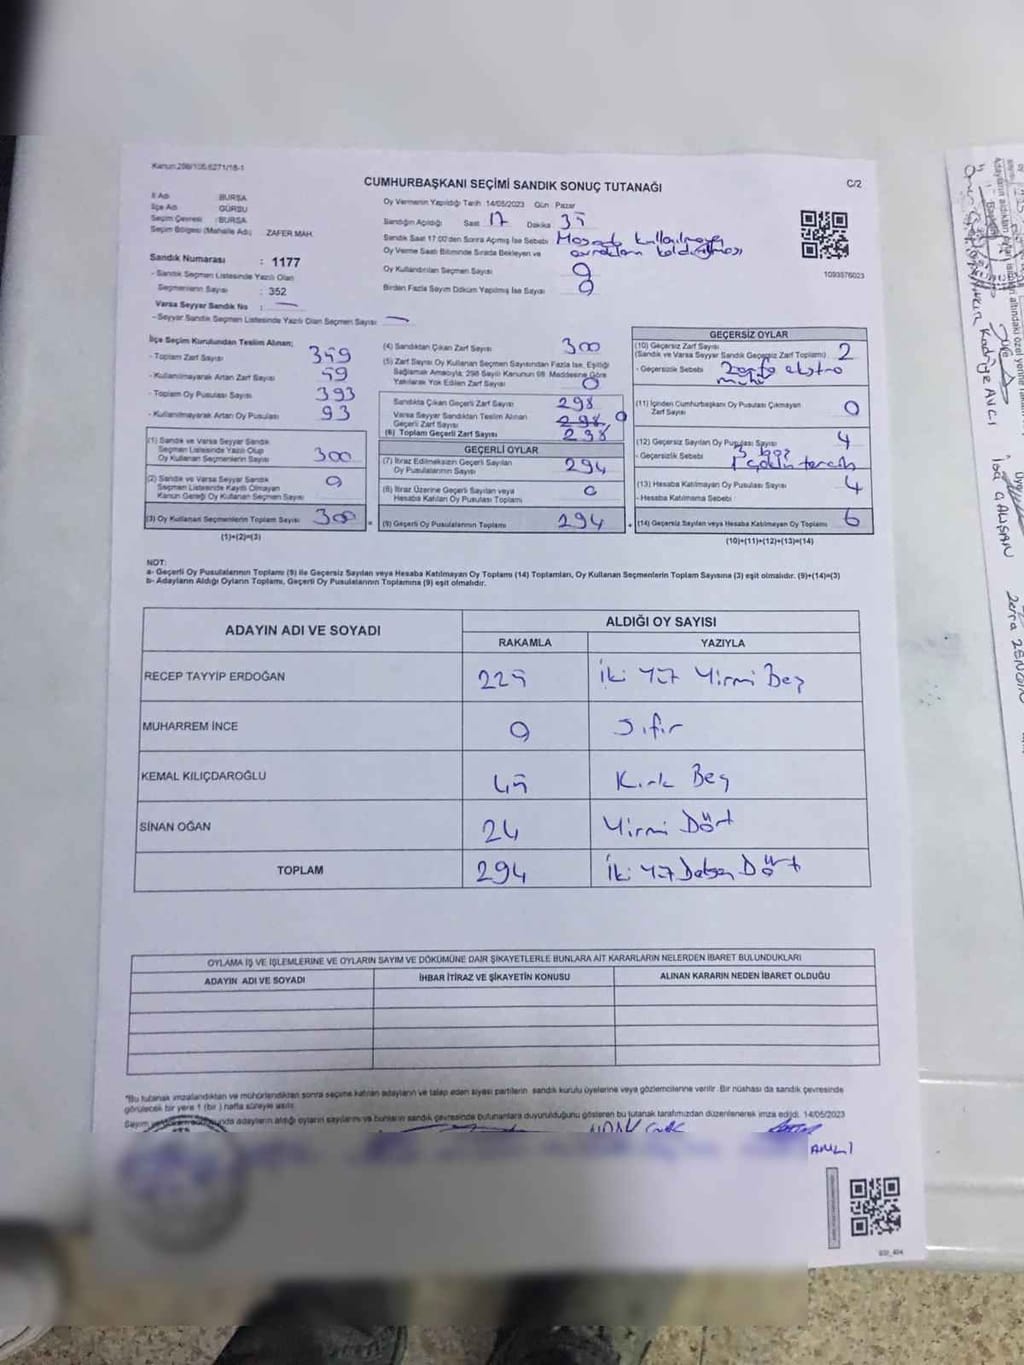 Kanun:298/105,6271/18-1
CUMHURBAŞKANI SEÇİMİ SANDIK SONUÇ TUTANAĞI
C/2
İl Adı : BURSA
İlçe Adı : GÜRSU
Seçim Çevresi : BURSA
Seçim Bölgesi (Mahalle Adı) ZAFER MAH.
Sandık Numarası : 1177
- Sandık Seçmen Listesinde Yazılı Olan
Seçmenlerin Sayısı : 352
Varsa Seyyar Sandık No : —
- Seyyar Sandık Seçmen Listesinde Yazılı Olan Seçmen Sayısı —
Oy Vermenin Yapıldığı Tarih 14/05/2023 Gün Pazar
Sandığın Açıldığı Saat 17 Dakika 35
Sandık Saat 17:00'den Sonra Açmış İse Sebebi Masada kullanılmayan
Oy Verme Saati Bitiminde Sırada Bekleyen ve evrakların kaldırılması
Oy Kullandırılan Seçmen Sayısı 0
Birden Fazla Sayım Döküm Yapılmış İse Sayısı 0
1093576023
İlçe Seçim Kurulundan Teslim Alınan;
- Toplam Zarf Sayısı 359
- Kullanılmayarak Artan Zarf Sayısı 59
- Toplam Oy Pusulası Sayısı 393
- Kullanılmayarak Artan Oy Pusulası 93
(1) Sandık ve Varsa Seyyar Sandık
Seçmen Listesinde Yazılı Olup
Oy Kullanan Seçmenlerin Sayısı 300
(2) Sandık ve Varsa Seyyar Sandık
Seçmen Listesinde Kayıtlı Olmayan
Kanun Gereği Oy Kullanan Seçmen Sayısı 0
(3) Oy Kullanan Seçmenlerin Toplam Sayısı 300
(1)+(2)=(3)
(4) Sandıktan Çıkan Zarf Sayısı 300
(5) Zarf Sayısı Oy Kullanan Seçmen Sayısından Fazla İse, Eşitliği
Sağlamak Amacıyla, 298 Sayılı Kanunun 98. Maddesine Göre
Yakılarak Yok Edilen Zarf Sayısı 0
Sandıkta Çıkan Geçerli Zarf Sayısı 298
Varsa Seyyar Sandıktan Teslim Alınan
Geçerli Zarf Sayısı 298 0
(6) Toplam Geçerli Zarf Sayısı 298
GEÇERLİ OYLAR
(7) İtiraz Edilmeksizin Geçerli Sayılan
Oy Pusulalarının Sayısı 294
(8) İtiraz Üzerine Geçerli Sayılan veya
Hesaba Katılan Oy Pusulası Toplamı 0
(9) Geçerli Oy Pusulalarının Toplamı 294
GEÇERSİZ OYLAR
(10) Geçersiz Zarf Sayısı
(Sandık ve Varsa Seyyar Sandık Geçersiz Zarf Toplamı) 2
- Geçersizlik Sebebi Zarfta ekstra
mühür
(11) İçinden Cumhurbaşkanı Oy Pusulası Çıkmayan
Zarf Sayısı 0
(12) Geçersiz Sayılan Oy Pusulası Sayısı 4
- Geçersizlik Sebebi
(13) Hesaba Katılmayan Oy Pusulası Sayısı 4
- Hesaba Katılmama Sebebi
(14) Geçersiz Sayılan veya Hesaba Katılmayan Oy Toplamı 6
(10)+(11)+(12)+(13)=(14)
NOT:
a- Geçerli Oy Pusulalarının Toplamı (9) ile Geçersiz Sayılan veya Hesaba Katılmayan Oy Toplamı (14) Toplamları, Oy Kullanan Seçmenlerin Toplam Sayısına (3) eşit olmalıdır. (9)+(14)=(3)
b- Adayların Aldığı Oyların Toplamı, Geçerli Oy Pusulalarının Toplamına (9) eşit olmalıdır.
ADAYIN ADI VE SOYADI
ALDIĞI OY SAYISI
RAKAMLA YAZIYLA
RECEP TAYYİP ERDOĞAN 225 İki Yüz Yirmi Beş
MUHARREM İNCE 0 Sıfır
KEMAL KILIÇDAROĞLU 45 Kırk Beş
SİNAN OĞAN 24 Yirmi Dört
TOPLAM 294 İki Yüz Doksan Dört
OYLAMA İŞ VE İŞLEMLERİNE VE OYLARIN SAYIM VE DÖKÜMÜNE DAİR ŞİKAYETLERLE BUNLARA AİT KARARLARIN NELERDEN İBARET BULUNDUKLARI
ADAYIN ADI VE SOYADI İHBAR İTİRAZ VE ŞİKAYETİN KONUSU ALINAN KARARIN NEDEN İBARET OLDUĞU
"Bu tutanak imzalandıktan ve mühürlendikten sonra seçime katılan adayların ve talep eden siyasi partilerin sandık kurulu üyelerine veya gözlemcilerine verilir. Bir nüshası da sandık çevresinde
görülecek bir yere 1 (bir) hafta süreyle asılır.
adayların aldığı oyların sayılarını ve bunların sandık çevresinde bulunanlara duyurulduğunu gösteren bu tutanak tarafımızdan düzenlenerek imza edildi. 14/05/2023
Kadriye AVCI
İsa ÇALIŞAN